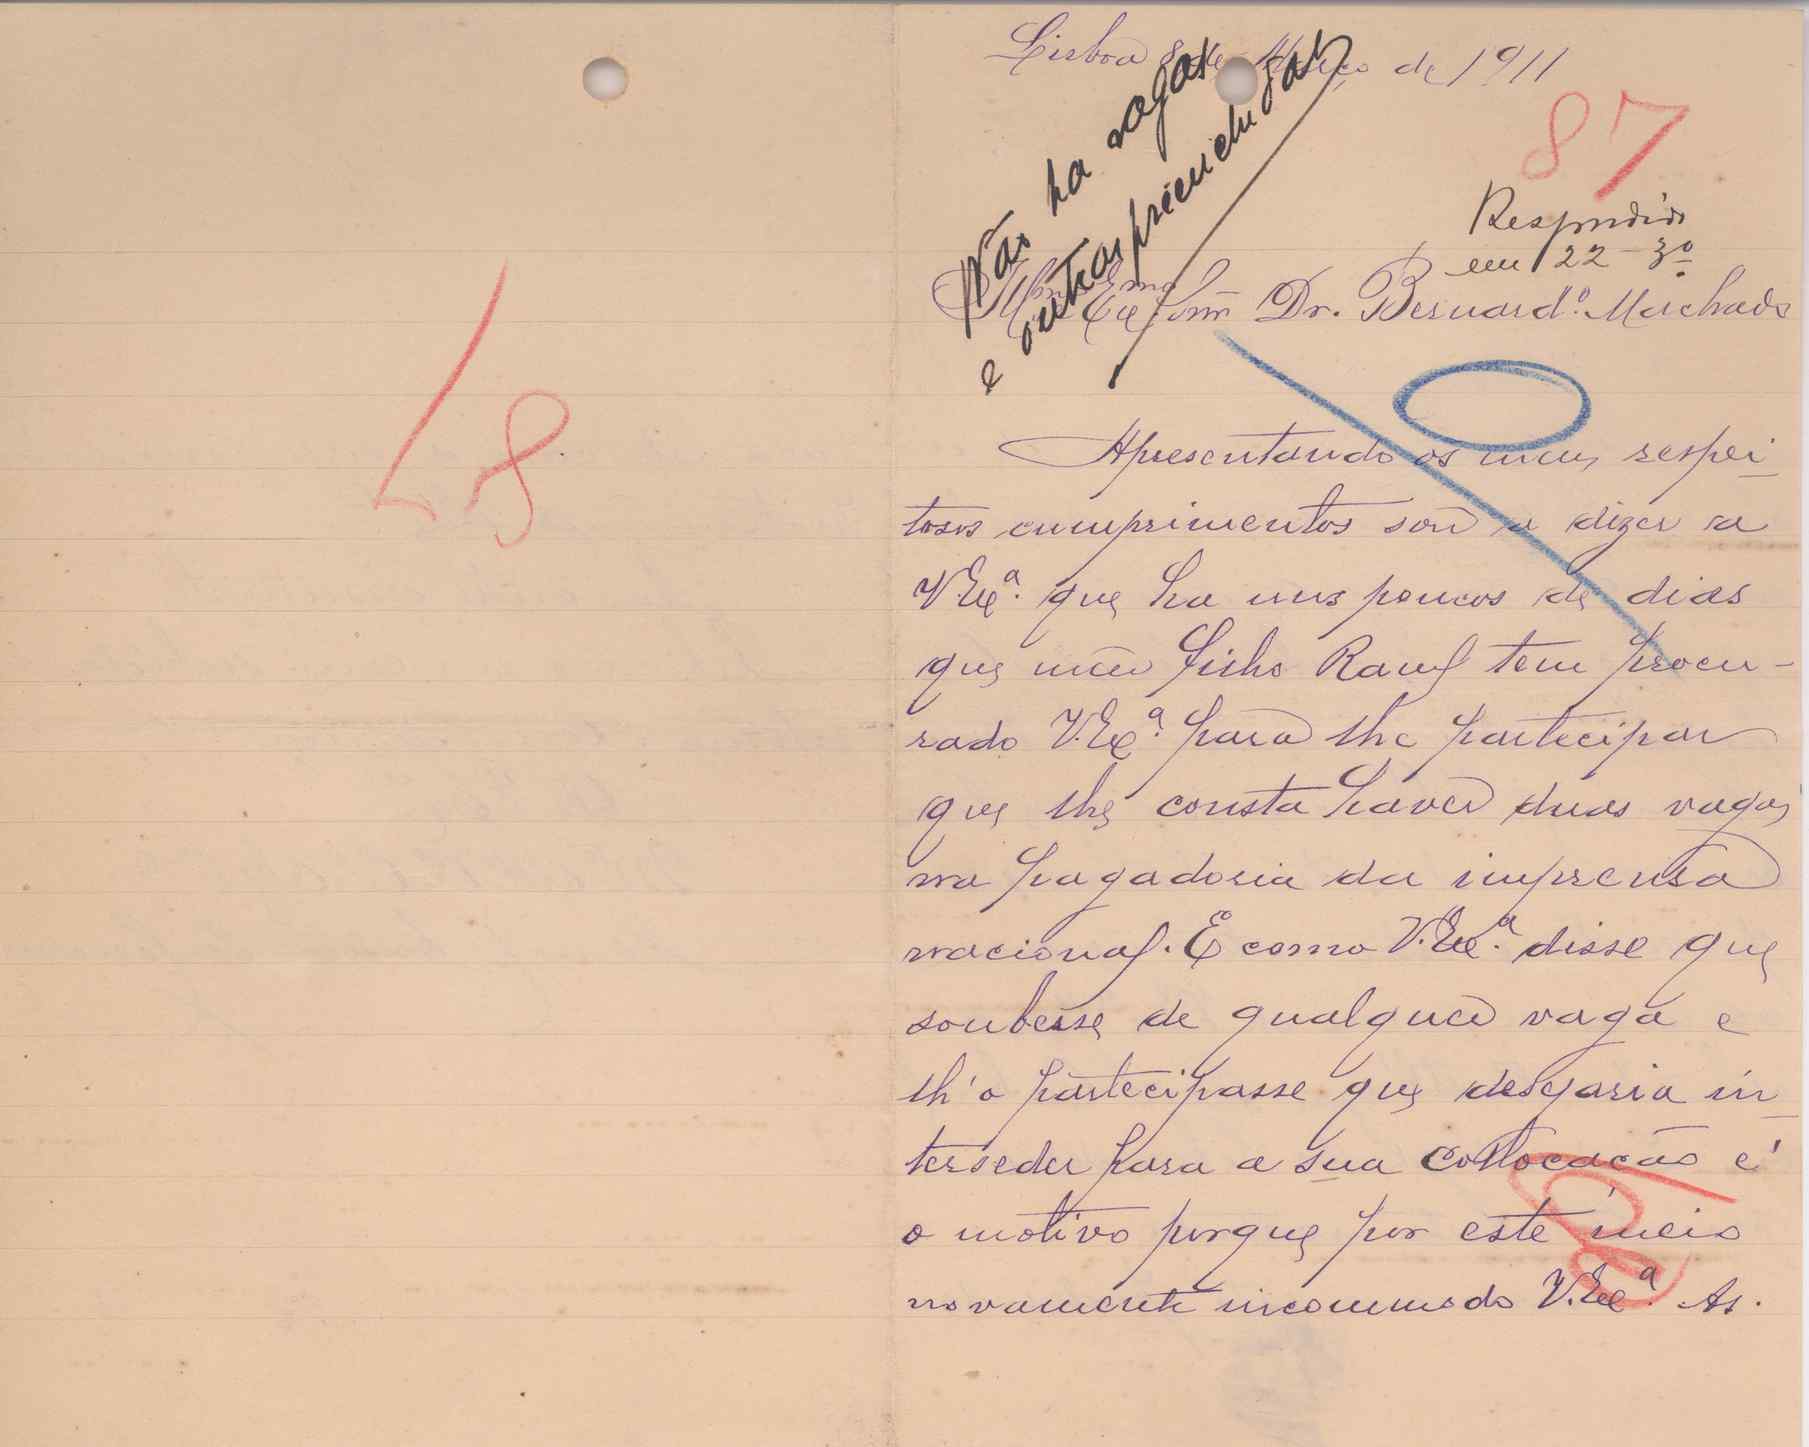 Lisboa 8 de Março de 1911
Não ha vagas
e outras preenchidas
87
Respondido
em 22-3º
Illmo Exmo Snr Dr. Bernardº. Machado
Apresentando os meus respei-
tosos cumprimentos sou a dizer a
V. Exª. que ha uns poucos de dias
que meu filho Raul tem procu-
rado V. Exª. para lhe participar
que lhe consta haver duas vagas
na pagadoria da imprensa
nacional. E como V. Exª. disse que
soubesse de qualquer vaga e
lh'o partecipasse que desejaria in-
terseder para a sua collocação é
o motivo porque por este meio
novamente incommodo V. Exª. As.
87